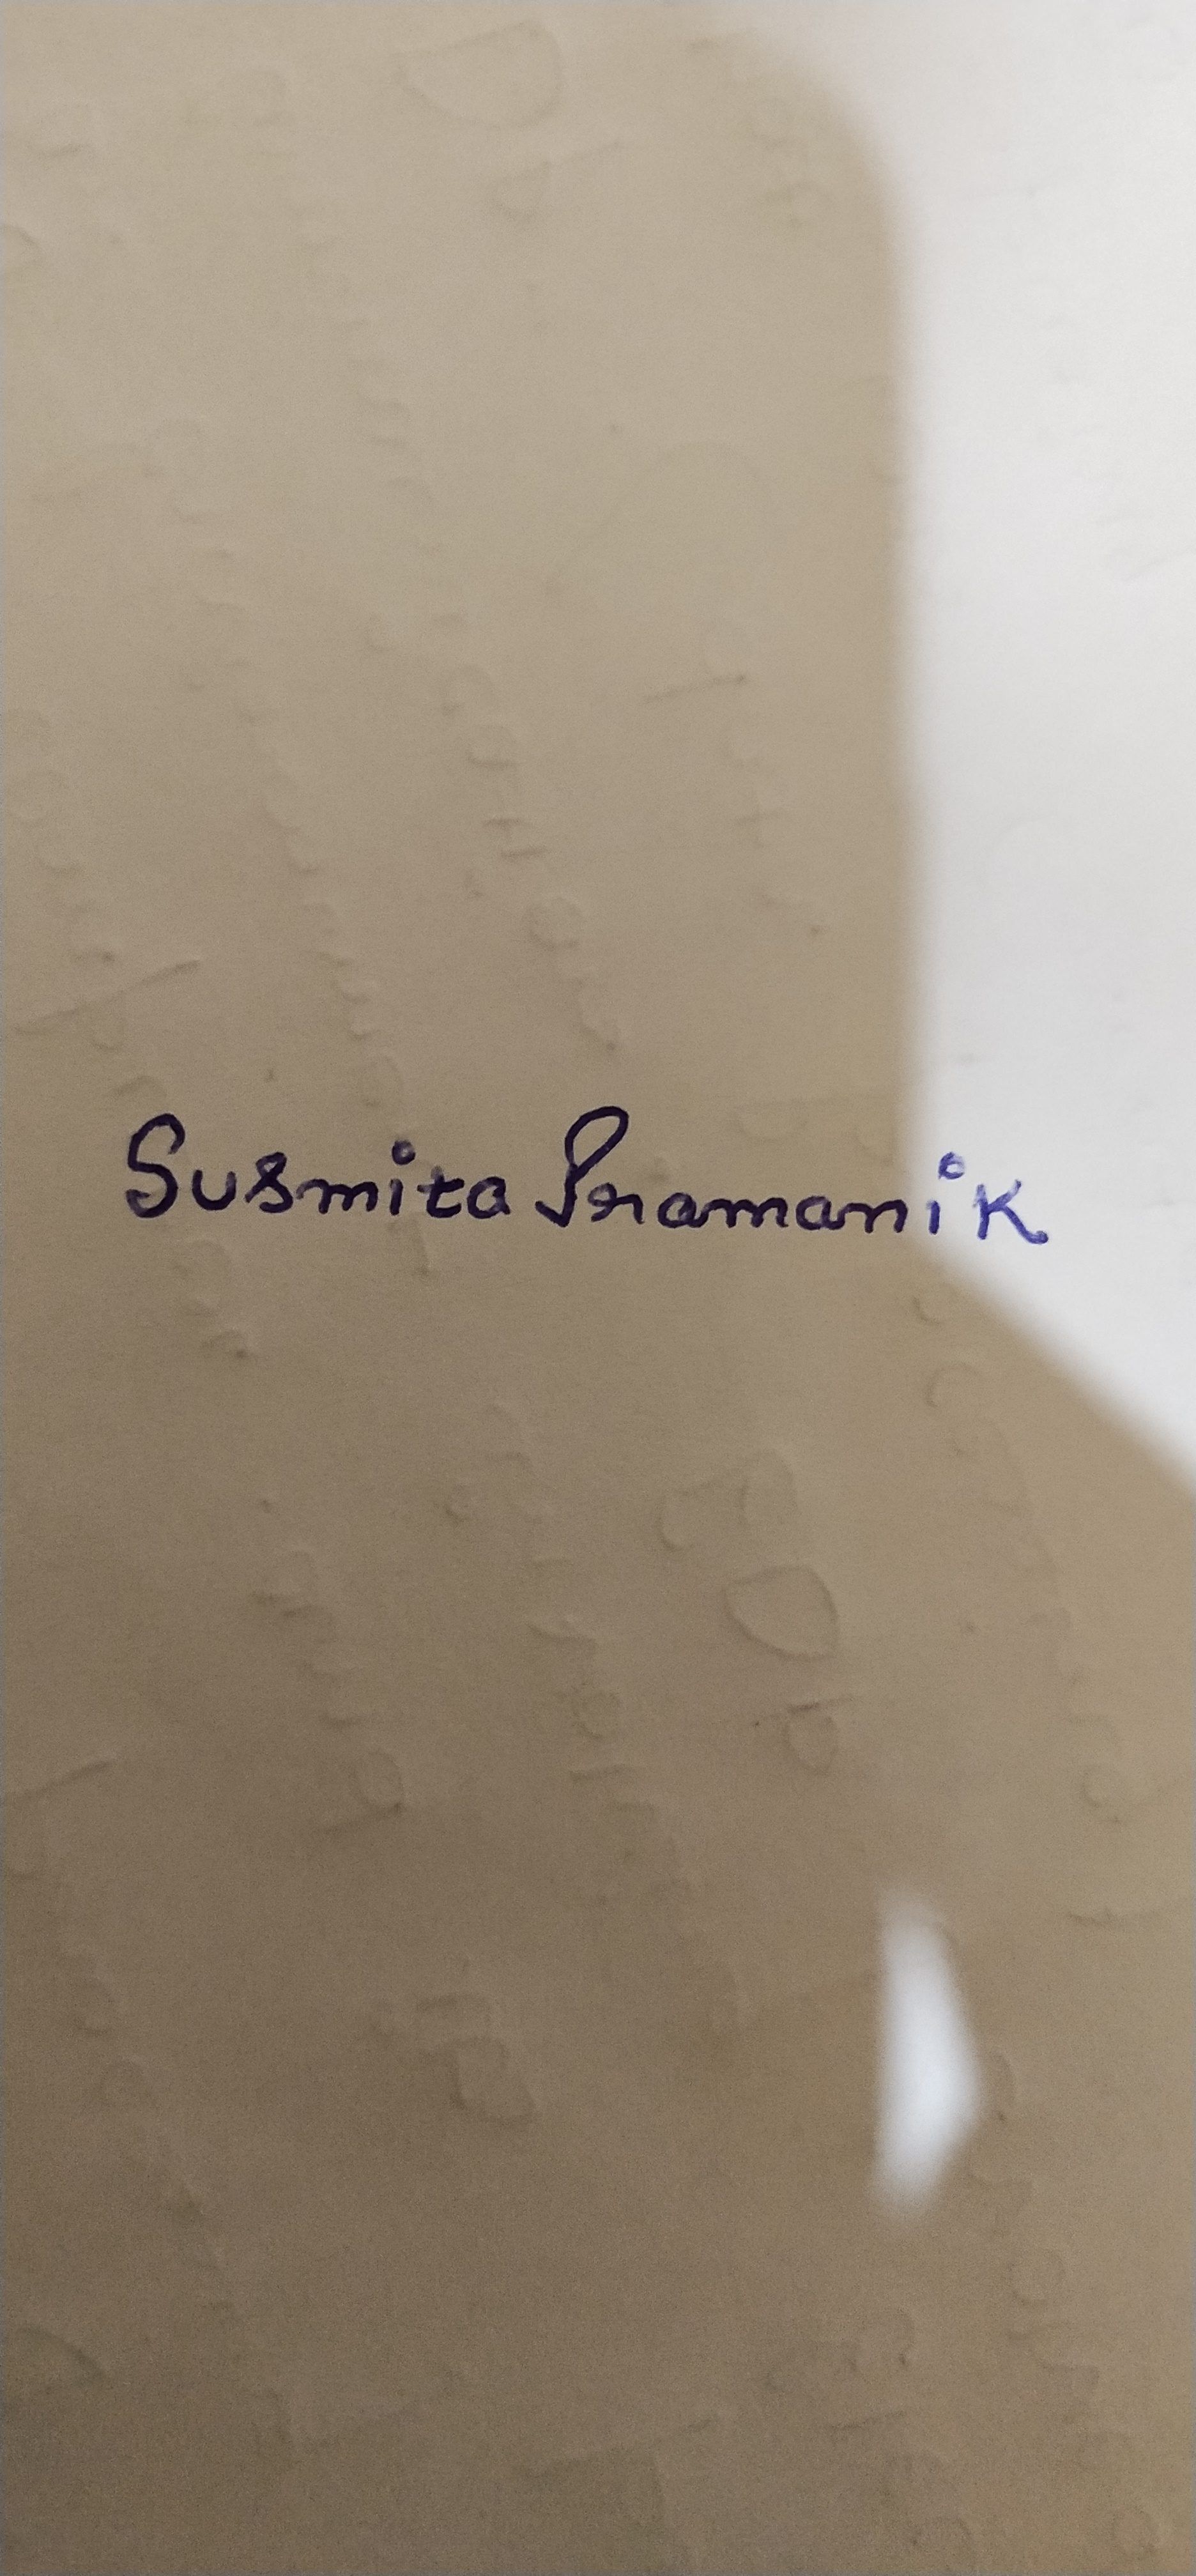 Susmita Pramanik